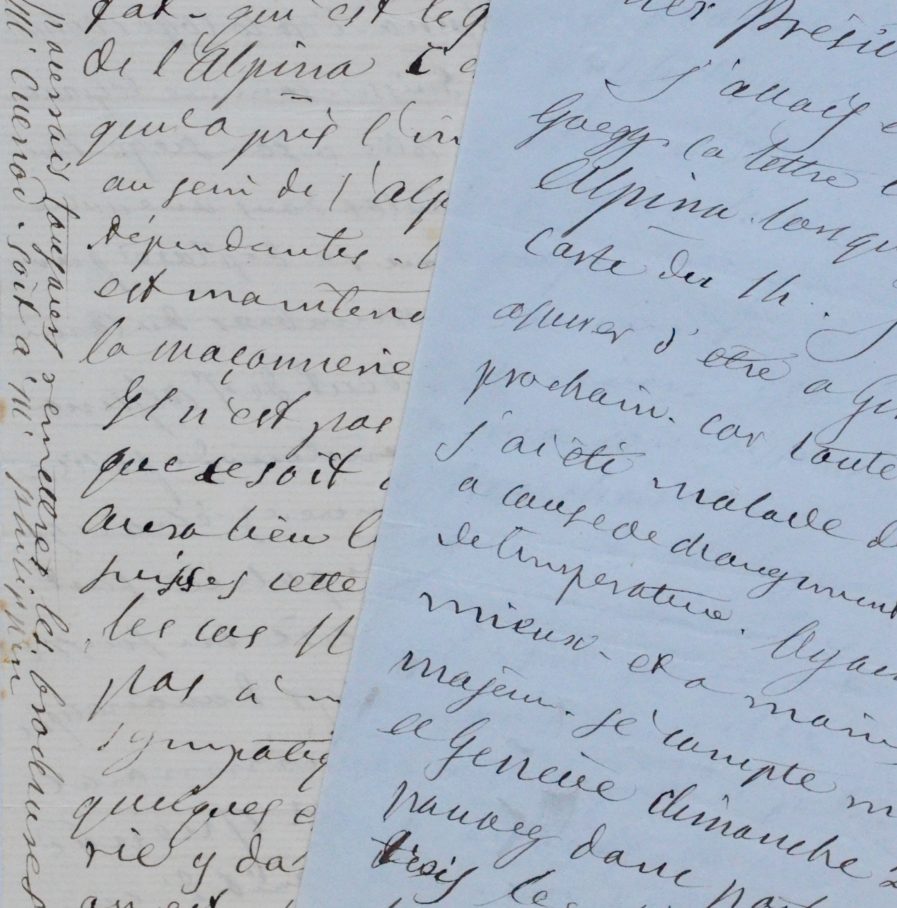 qui est le
de l'Alpina
qui a pris l'in
au sein de l'alp
dépendantes -
est mainten
la maçonnerie
Il n'est pas
que ce soit
aura bien l
puisses cette
les cas
pas à
sympatiq
quelques
rie y da
on est
pourrais toujours remettre les brochures
M. Cuenod. soit à M. philippin
J'allais e
Goegg la lettre
Alpina. lorsqu
carte du 14.
assurer d'etre a Ge
prochain. car toute
j'ai été malade d
a cause de changement
de temperature. Ayan
mieux. et a moin
majeur. je compte m
et Genève dimanche 2
dans
trois les